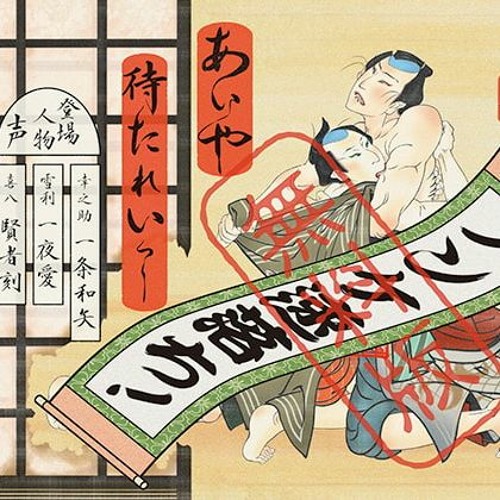 あいや
待たれいっ
登場
人物
声
幸之助 一条和矢
雪利 一夜愛
喜八 賢者刻
ノンケ速落ち!
無